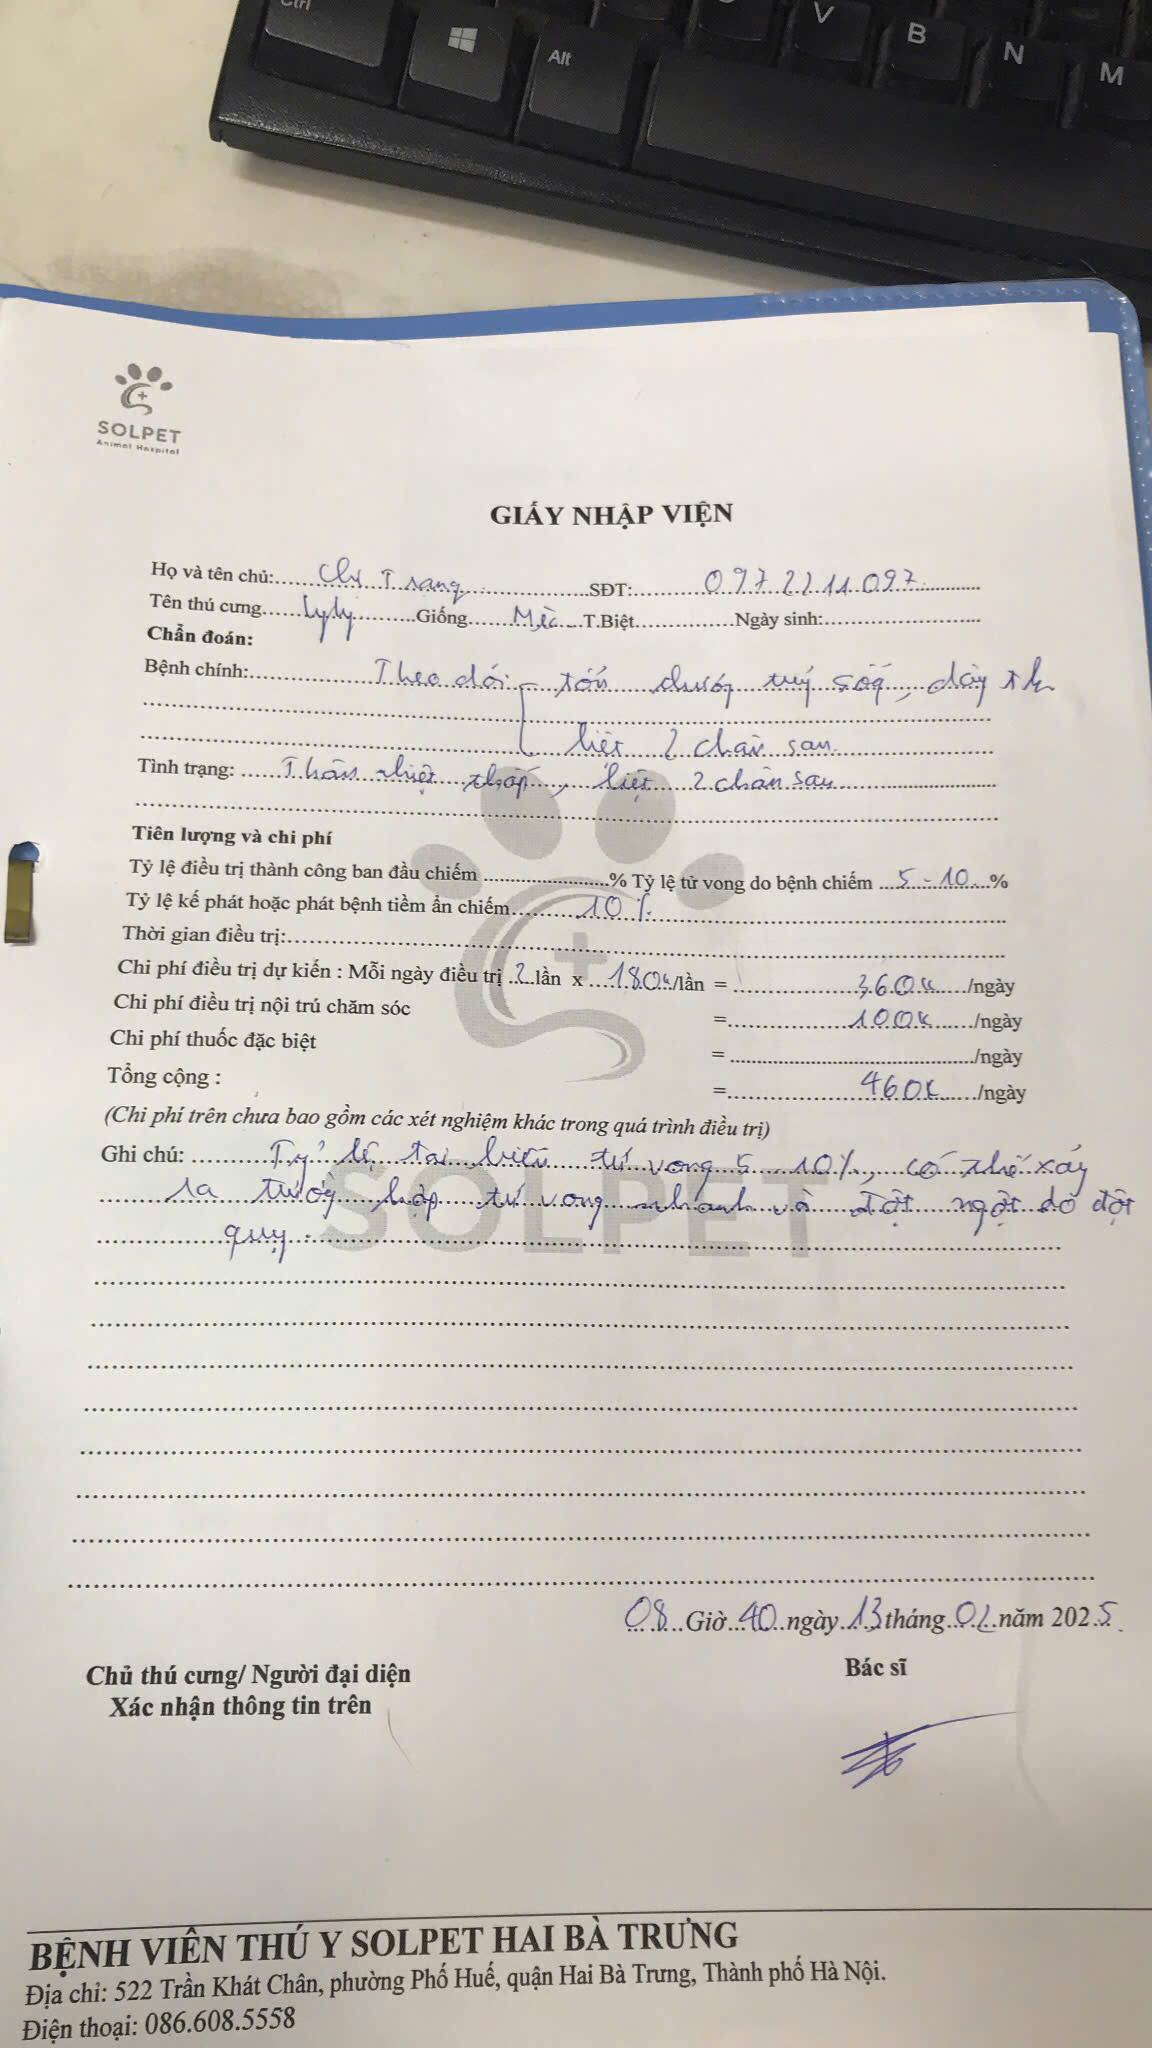 Ctrl
Alt
V
B
N
M
SOLPET
Animal Hospital
GIẤY NHẬP VIỆN
Họ và tên chủ: Chị Trang SĐT: 0972211097
Tên thú cưng Lyly Giống Mèo T.Biệt Ngày sinh:
Chẩn đoán:
Bệnh chính: Theo dõi tổn thương tuỷ sống, dây tk
liệt 2 chân sau
Tình trạng: Thân nhiệt thấp, liệt 2 chân sau
Tiên lượng và chi phí
Tỷ lệ điều trị thành công ban đầu chiếm % Tỷ lệ tử vong do bệnh chiếm 5-10 %
Tỷ lệ kế phát hoặc phát bệnh tiềm ẩn chiếm 10%
Thời gian điều trị:
Chi phí điều trị dự kiến : Mỗi ngày điều trị 2 lần x 180k/lần = 360k /ngày
Chi phí điều trị nội trú chăm sóc = 100k /ngày
Chi phí thuốc đặc biệt = /ngày
Tổng cộng : = 460k /ngày
(Chi phí trên chưa bao gồm các xét nghiệm khác trong quá trình điều trị)
Ghi chú: Tỷ lệ tai biến tử vong 5 - 10%, có thể xảy
ra trường hợp tử vong nhanh và đột ngột do đột
quỵ.
SOLPET
08 Giờ 40 ngày 13 tháng 02 năm 2025
Chủ thú cưng/ Người đại diện
Xác nhận thông tin trên
Bác sĩ
BỆNH VIỆN THÚ Y SOLPET HAI BÀ TRƯNG
Địa chỉ: 522 Trần Khát Chân, phường Phố Huế, quận Hai Bà Trưng, Thành phố Hà Nội.
Điện thoại: 086.608.5558